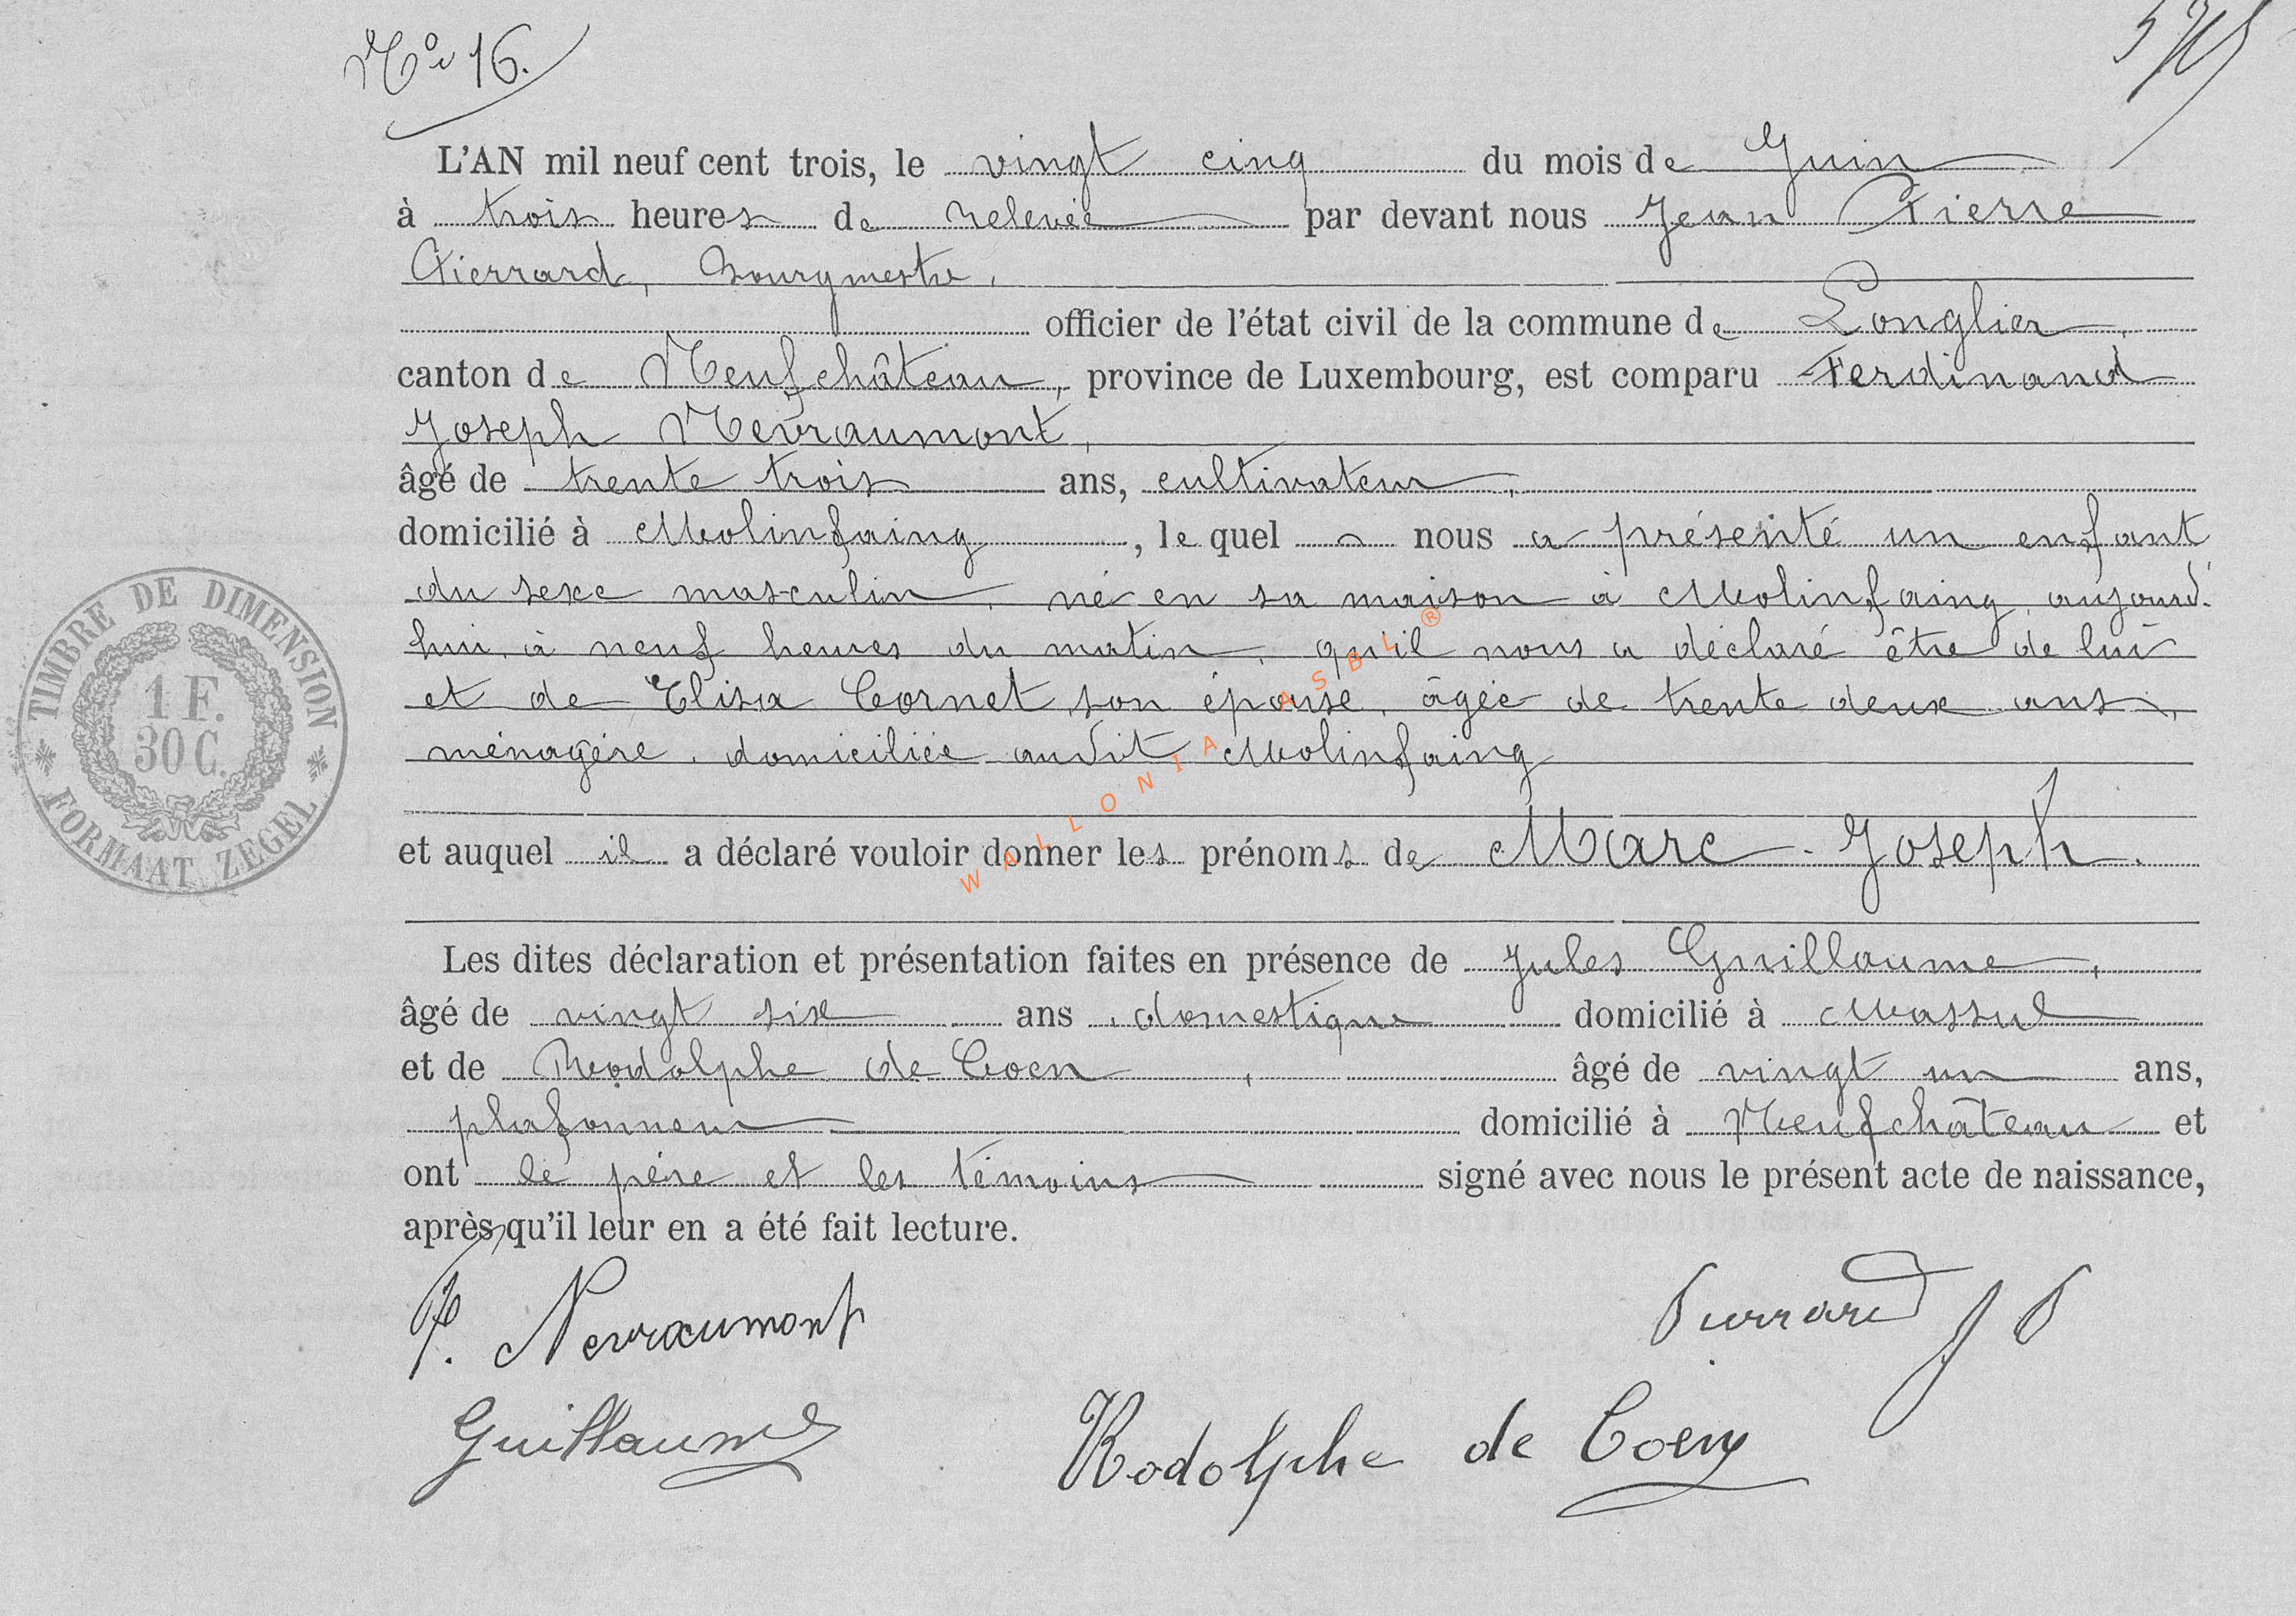 No 16.
L'AN mil neuf cent trois, le vingt cinq du mois de Juin
à trois heures de relevée par devant nous Jean Pierre
Pierrard, Bourgmestre,
officier de l'état civil de la commune de Longlier,
canton de Neufchâteau, province de Luxembourg, est comparu Ferdinand
Joseph Nevraumont,
âgé de trente trois ans, cultivateur,
domicilié à Molinfaing, le quel nous a présenté un enfant
du sexe masculin, né en sa maison à Molinfaing, aujourd'
hui, à neuf heures du matin, qu'il nous a déclaré être de lui
et de Elisa Cornet, son épouse, âgée de trente deux ans,
ménagère, domiciliée audit Molinfaing
et auquel il a déclaré vouloir donner les prénoms de Marc-Joseph.
Les dites déclaration et présentation faites en présence de Jules Guillaume,
âgé de vingt six ans, domestique domicilié à Massul
et de Rodolphe de Coen, âgé de vingt un ans,
plafonneur domicilié à Neufchâteau et
ont le père et les témoins signé avec nous le présent acte de naissance,
après qu'il leur en a été fait lecture.
F. Nevraumont
Pierrard J P
Guillaume
Rodolphe de Coen
TIMBRE DE DIMENSION
1 F.
30 C.
FORMAAT ZEGEL
WALLONIA ASBL ®